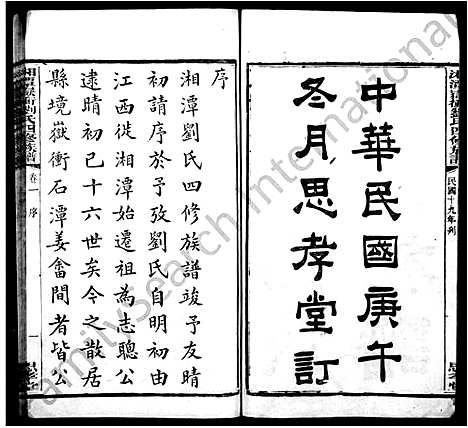 中華民國庚午
冬月思孝堂訂
民國十九年刋
序
湘潭劉氏四修族譜竣予友晴
初請序於予攷劉氏自明初由
江西徙湘潭始遷祖為志聰公
逮晴初已十六世矣今之散居
縣境嶽衝石潭姜畬間者皆公
劉氏四修族譜
卷一 序
一
FamilySearch International